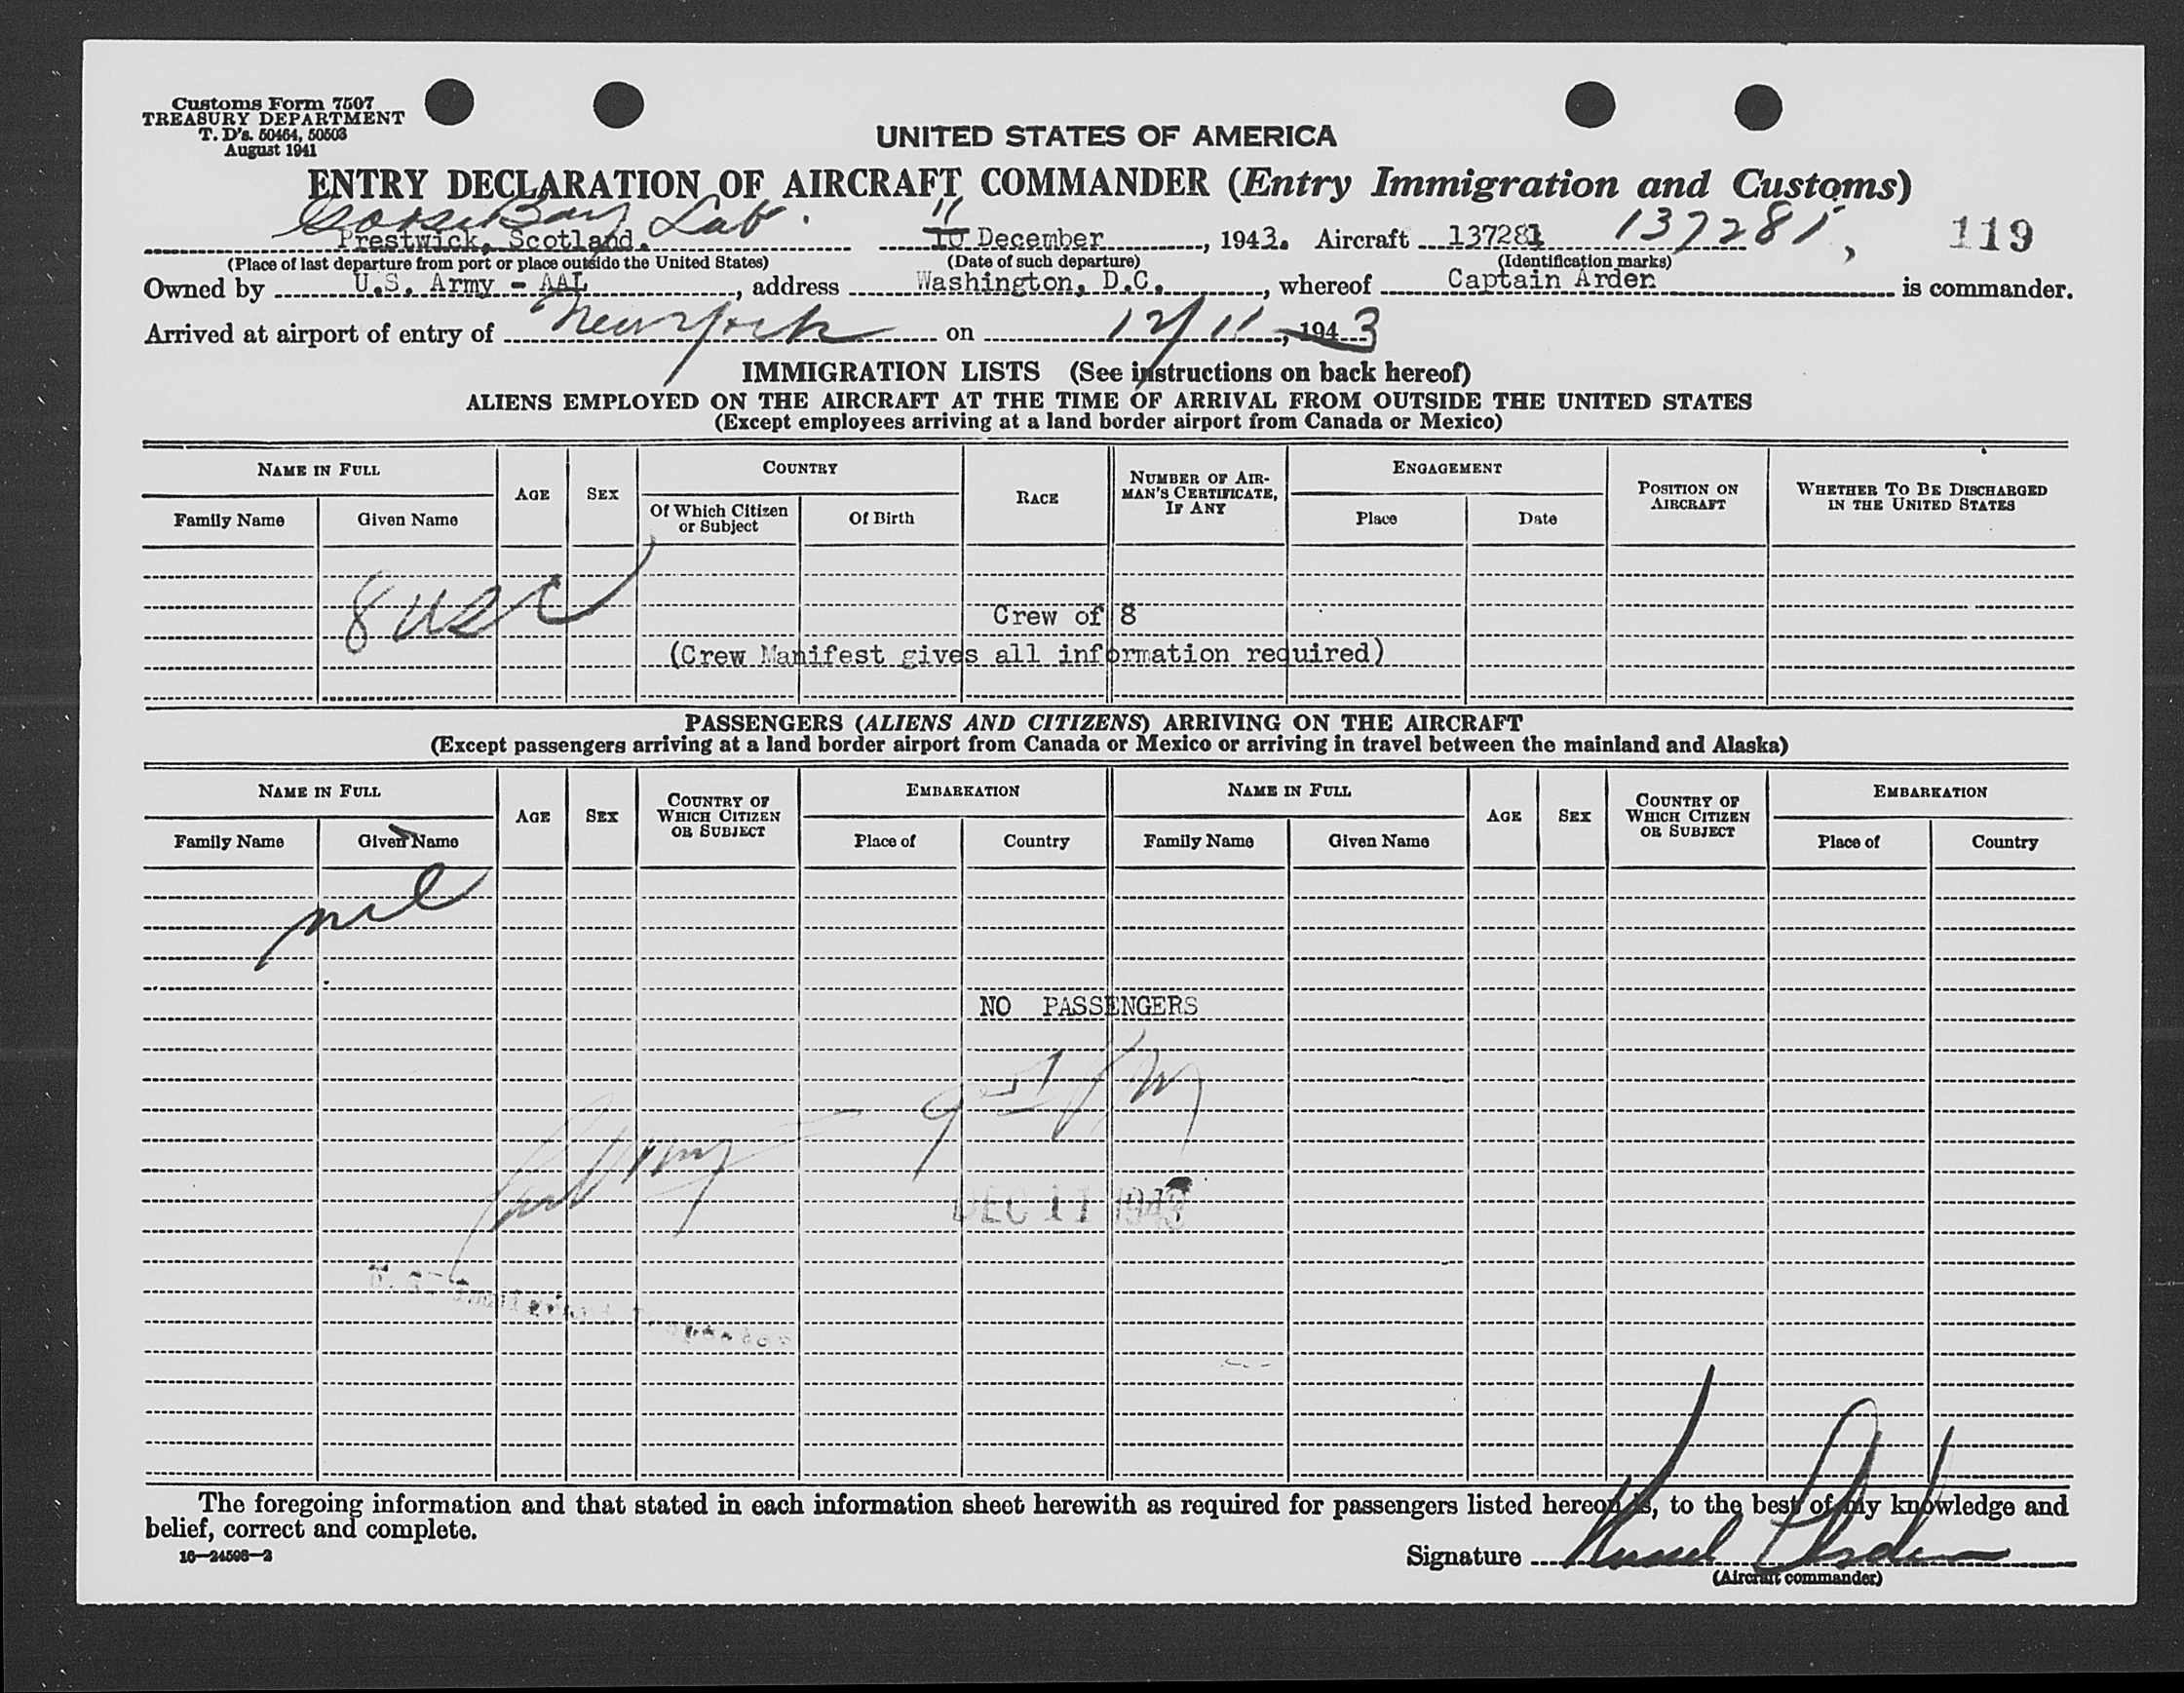 Customs Form 7507
TREASURY DEPARTMENT
T. D's. 50464, 50503
August 1941
UNITED STATES OF AMERICA
ENTRY DECLARATION OF AIRCRAFT COMMANDER (Entry Immigration and Customs)
Goose Bay Lab. 11 137281, 119
Prestwick, Scotland. 10 December, 1943. Aircraft 137281
(Place of last departure from port or place outside the United States) (Date of such departure) (Identification marks)
Owned by U.S. Army - AAL, address Washington, D.C., whereof Captain Arden is commander.
Arrived at airport of entry of New York on 12/11, 1943
IMMIGRATION LISTS (See instructions on back hereof)
ALIENS EMPLOYED ON THE AIRCRAFT AT THE TIME OF ARRIVAL FROM OUTSIDE THE UNITED STATES
(Except employees arriving at a land border airport from Canada or Mexico)
NAME IN FULL AGE SEX COUNTRY RACE NUMBER OF AIRMAN'S CERTIFICATE, IF ANY ENGAGEMENT POSITION ON AIRCRAFT WHETHER TO BE DISCHARGED IN THE UNITED STATES
Family Name Given Name Of Which Citizen or Subject Of Birth Place Date
8 USC
Crew of 8
(Crew Manifest gives all information required)
PASSENGERS (ALIENS AND CITIZENS) ARRIVING ON THE AIRCRAFT
(Except passengers arriving at a land border airport from Canada or Mexico or arriving in travel between the mainland and Alaska)
NAME IN FULL AGE SEX COUNTRY OF WHICH CITIZEN OR SUBJECT EMBARKATION NAME IN FULL AGE SEX COUNTRY OF WHICH CITIZEN OR SUBJECT EMBARKATION
Family Name Given Name Place of Country Family Name Given Name Place of Country
nil
NO PASSENGERS
DEC 11 1943
U. S. Immigrant Inspector
The foregoing information and that stated in each information sheet herewith as required for passengers listed hereon is, to the best of my knowledge and
belief, correct and complete.
16—24508-2
Signature Russel Arden
(Aircraft commander)